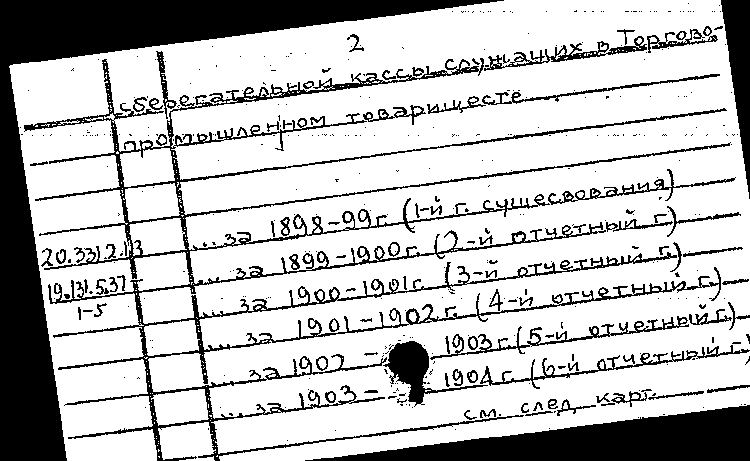 2
сберегательной кассы служащих в Торгово-
промышленном товариществе
... за 1898-99г. (1-й г. сущесвования)
20.331.2.13
... за 1899-1900г. (2-й отчетный г.)
19.131.5.37
1-5
... за 1900-1901г. (3-й отчетный г.)
... за 1901-1902г. (4-й отчетный г.)
... за 1902 - 1903г. (5-й отчетный г.)
... за 1903 - 1904г. (6-й отчетный г.)
см. след. карт.